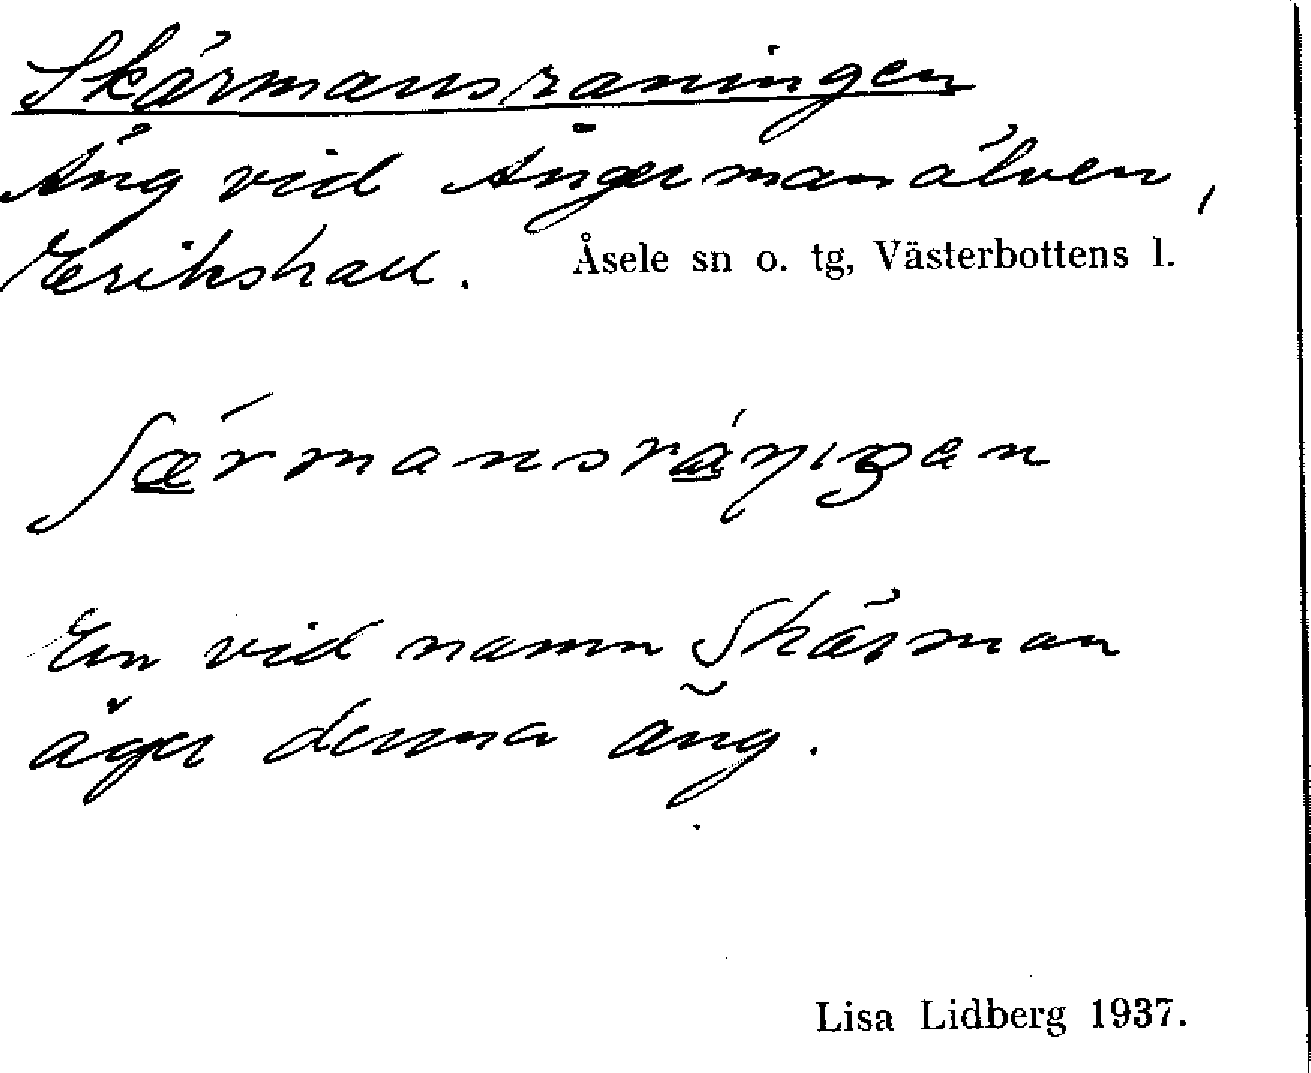 Skärmansraningen
Äng vid Ångermanälven,
Erikshall. Åsele sn o. tg, Västerbottens l.
ʃærmansráŋıgen
En vid namn Skärman
äger denna äng.
Lisa Lidberg 1937.